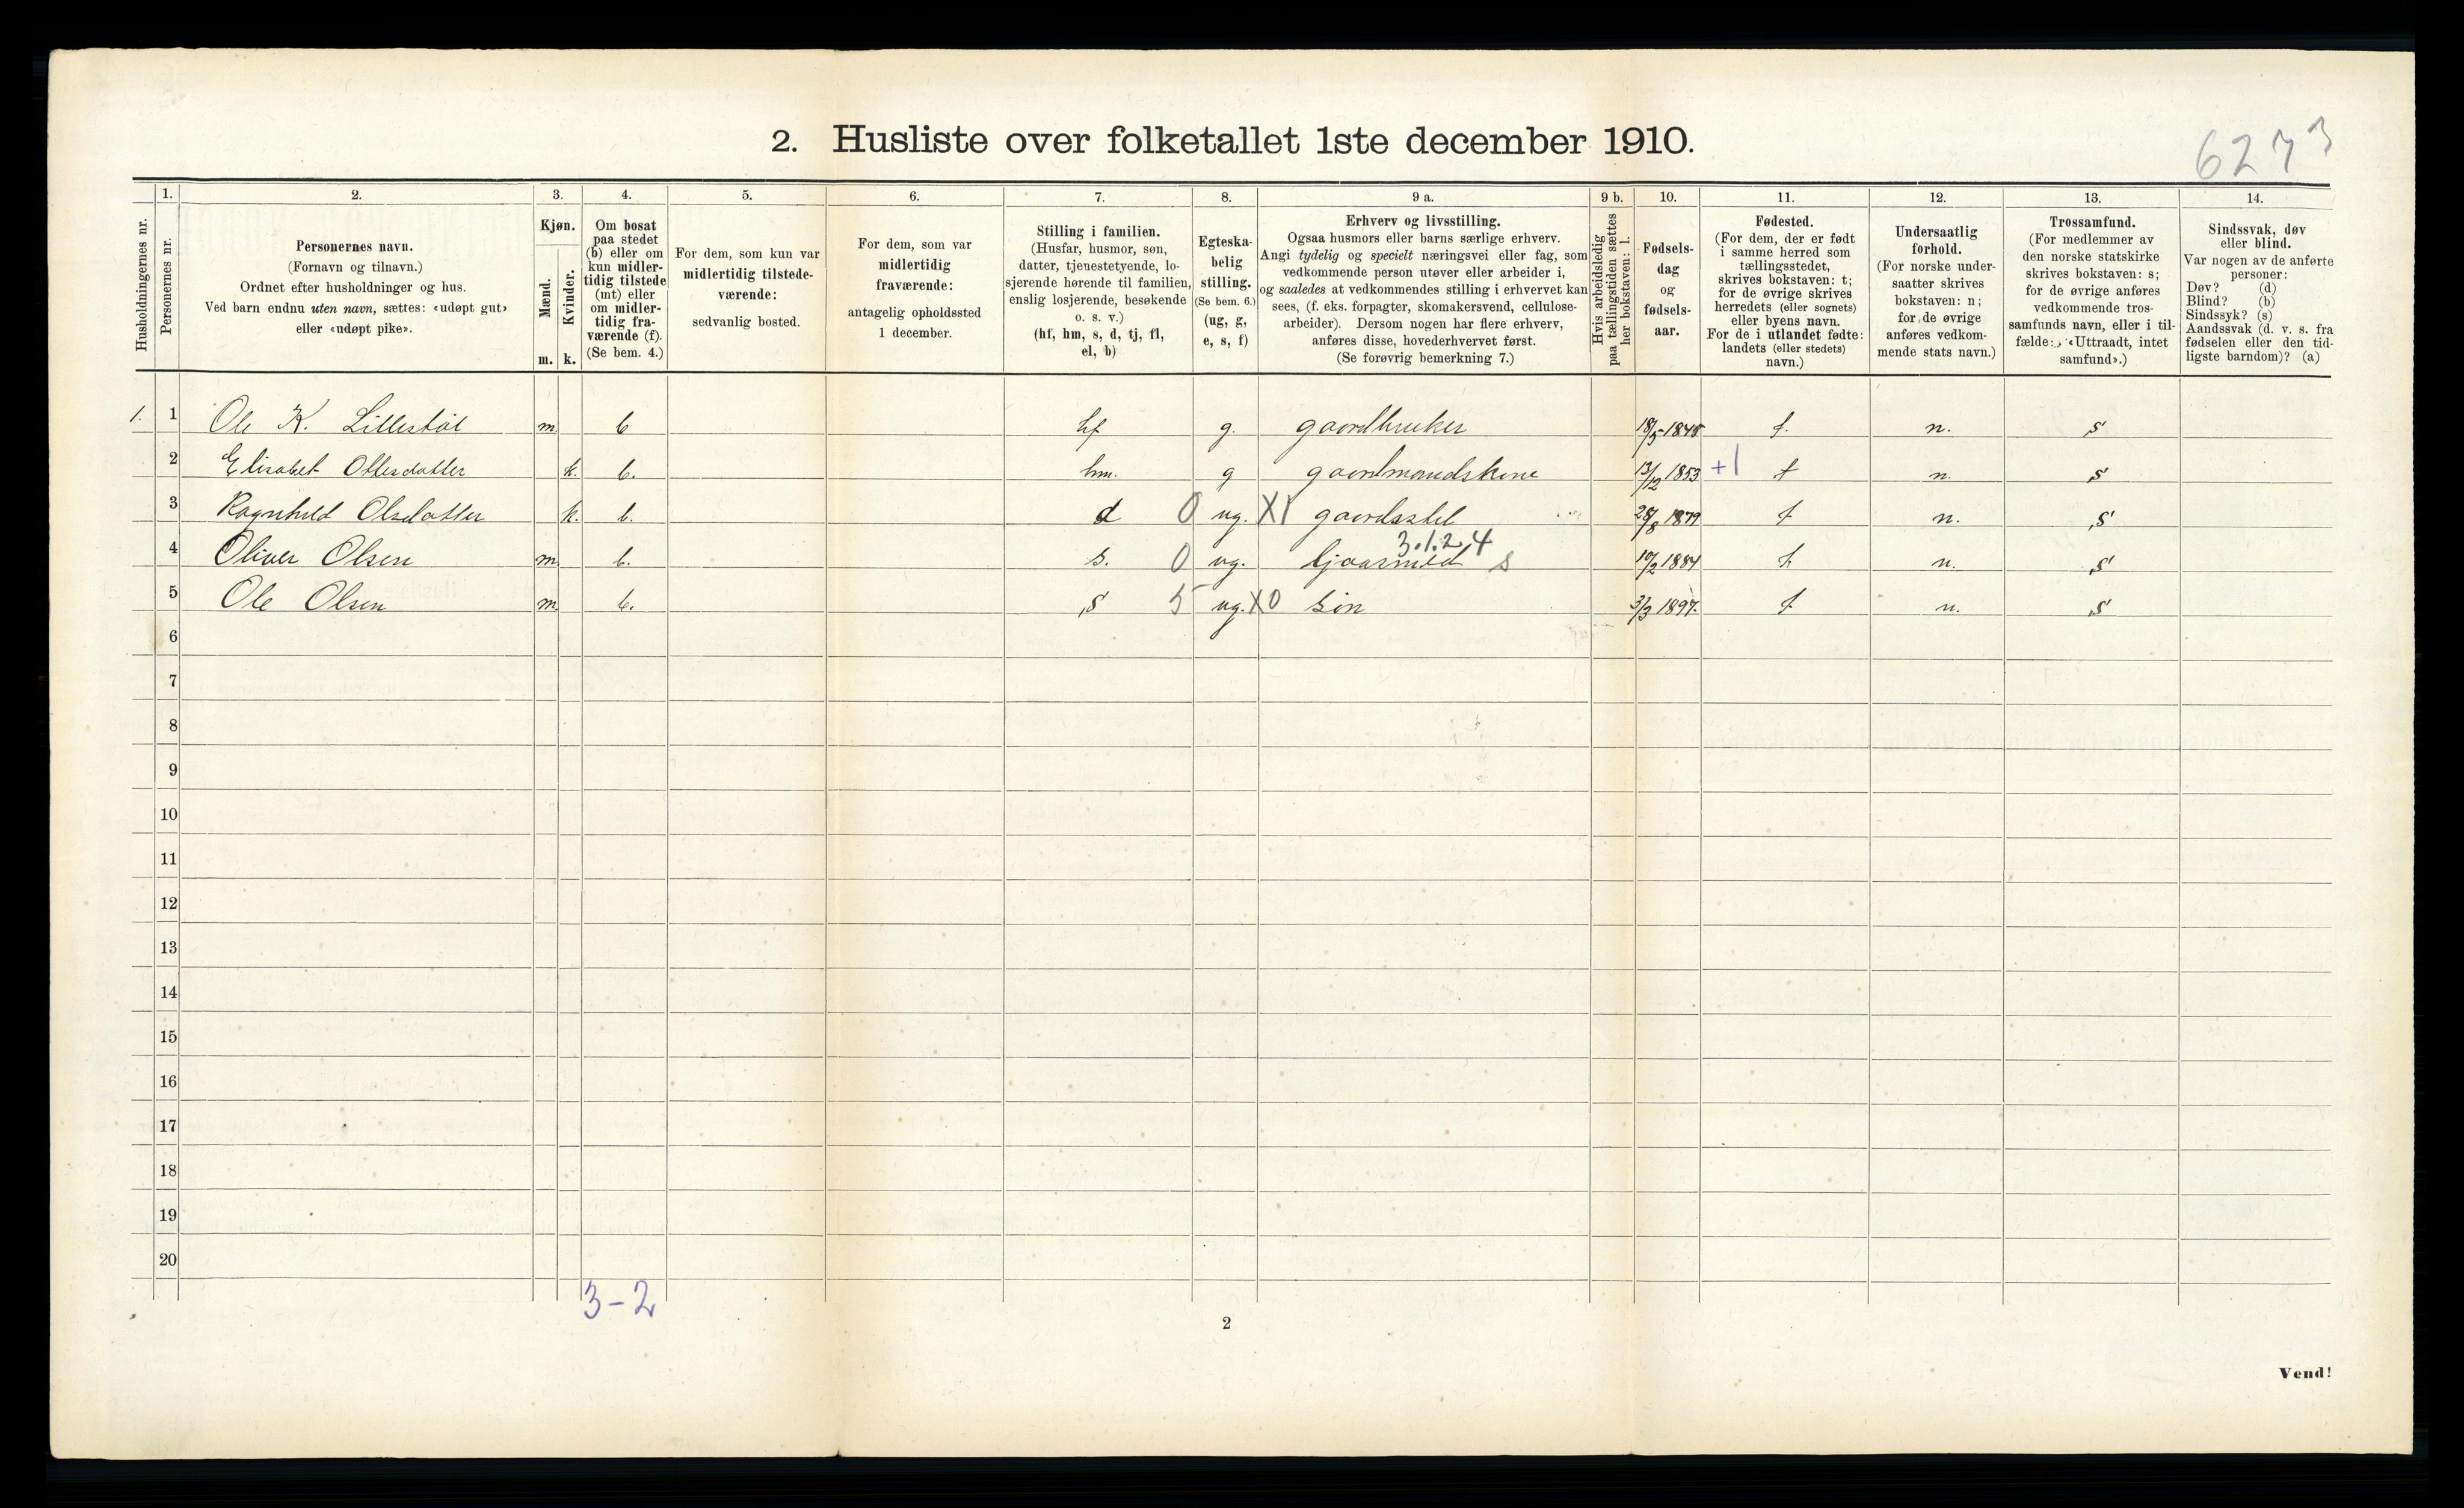 2. Husliste over folketallet 1ste december 1910.
6273
Husholdningernes nr.
1.
Personernes nr.
2.
Personernes navn.
(Fornavn og tilnavn.)
Ordnet efter husholdninger og hus.
Ved barn endnu uten navn, sættes: «udøpt gut»
eller «udøpt pike».
3.
Kjøn.
Mænd.
Kvinder.
m. k.
4.
Om bosat
paa stedet
(b) eller om
kun midler-
tidig tilstede
(mt) eller
om midler-
tidig fra-
værende (f).
(Se bem. 4.)
5.
For dem, som kun var
midlertidig tilstede-
værende:
sedvanlig bosted.
6.
For dem, som var
midlertidig
fraværende:
antagelig opholdssted
1 december.
7.
Stilling i familien.
(Husfar, husmor, søn,
datter, tjenestetyende, lo-
sjerende hørende til familien,
enslig losjerende, besøkende
o. s. v.)
(hf, hm, s, d, tj, fl,
el, b)
8.
Egteska-
belig
stilling.
(Se bem. 6.)
(ug, g,
e, s, f)
9 a.
Erhverv og livsstilling.
Ogsaa husmors eller barns særlige erhverv.
Angi tydelig og specielt næringsvei eller fag, som
vedkommende person utøver eller arbeider i,
og saaledes at vedkommendes stilling i erhvervet kan
sees, (f. eks. forpagter, skomakersvend, cellulose-
arbeider). Dersom nogen har flere erhverv,
anføres disse, hovederhvervet først.
(Se forøvrig bemerkning 7.)
9 b.
Hvis arbeidsledig
paa tællingstiden sættes
her bokstaven: l.
10.
Fødsels-
dag
og
fødsels-
aar.
11.
Fødested.
(For dem, der er født
i samme herred som
tællingsstedet,
skrives bokstaven: t;
for de øvrige skrives
herredets (eller sognets)
eller byens navn.
For de i utlandet fødte:
landets (eller stedets)
navn.)
12.
Undersaatlig
forhold.
(For norske under-
saatter skrives
bokstaven: n;
for de øvrige
anføres vedkom-
mende stats navn.)
13.
Trossamfund.
(For medlemmer av
den norske statskirke
skrives bokstaven: s;
for de øvrige anføres
vedkommende tros-
samfunds navn, eller i til-
fælde: «Uttraadt, intet
samfund».)
14.
Sindssvak, døv
eller blind.
Var nogen av de anførte
personer:
Døv? (d)
Blind? (b)
Sindssyk? (s)
Aandssvak (d. v. s. fra
fødselen eller den tid-
ligste barndom)? (a)
1. 1 Ole K. Lillestøl m. b hf g. gaardbruker 18/5-1848 t. n. s
2 Elisabet Ottesdatter k. b. hm. g gaardmandskone 13/12 1853 +1 t n. s
3 Ragnhild Olsdatter k. b. d 0 ug. X1 gaardsstel 28/8 1879 t n. s
3.1.24
4 Oliver Olsen m. b. s. 0 ug. ljaasmed s 10/2 1884 t n. s
5 Ole Olsen m b. s 5 ug. X0 søn 3/3 1897. t n. s
6
7
8
9
10
11
12
13
14
15
16
17
18
19
20
3-2
2
Vend!